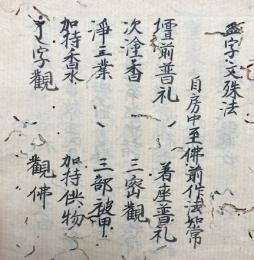 字文殊法
自房中至佛前作法如常
壇前普礼　着座普礼
次塗香　三密觀
淨三業　三部被甲
加持香水　加持供物
字觀　觀佛